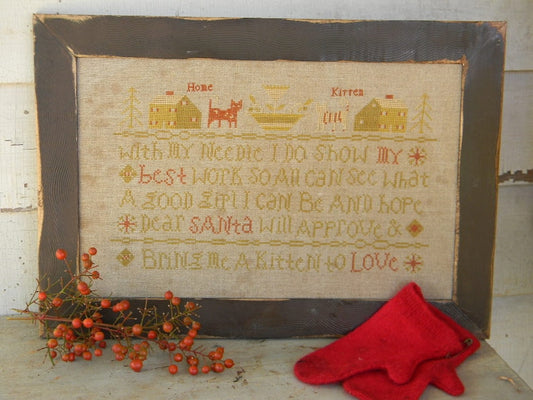 Home Kitten
with MY Needle I do show MY
best work so All can see what
A good girl I can Be And hope
dear SANta will Approve &
Bring me A Kitten to LOVE